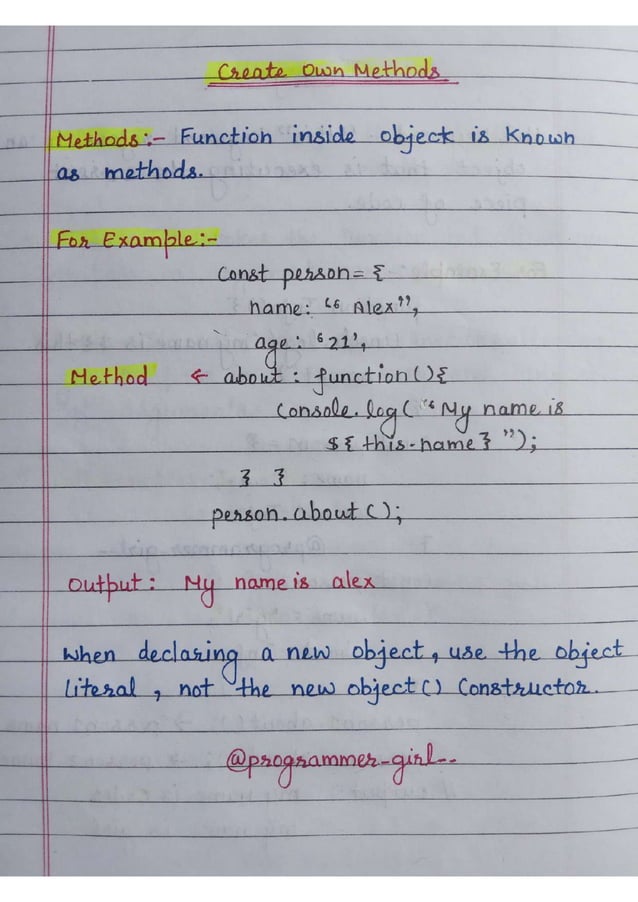 Create Own Methods
Methods:- Function inside object is Known
as methods.
For Example:-
Const person= {
name: “ Alex”,
age: ‘21’,
Method ← about : function(){
Console.log( “ My name is
${ this.name} ”);
} }
person.about();
Output: My name is alex
When declaring a new object, use the object
literal, not the new object() Constructor.
@programmer-girl--